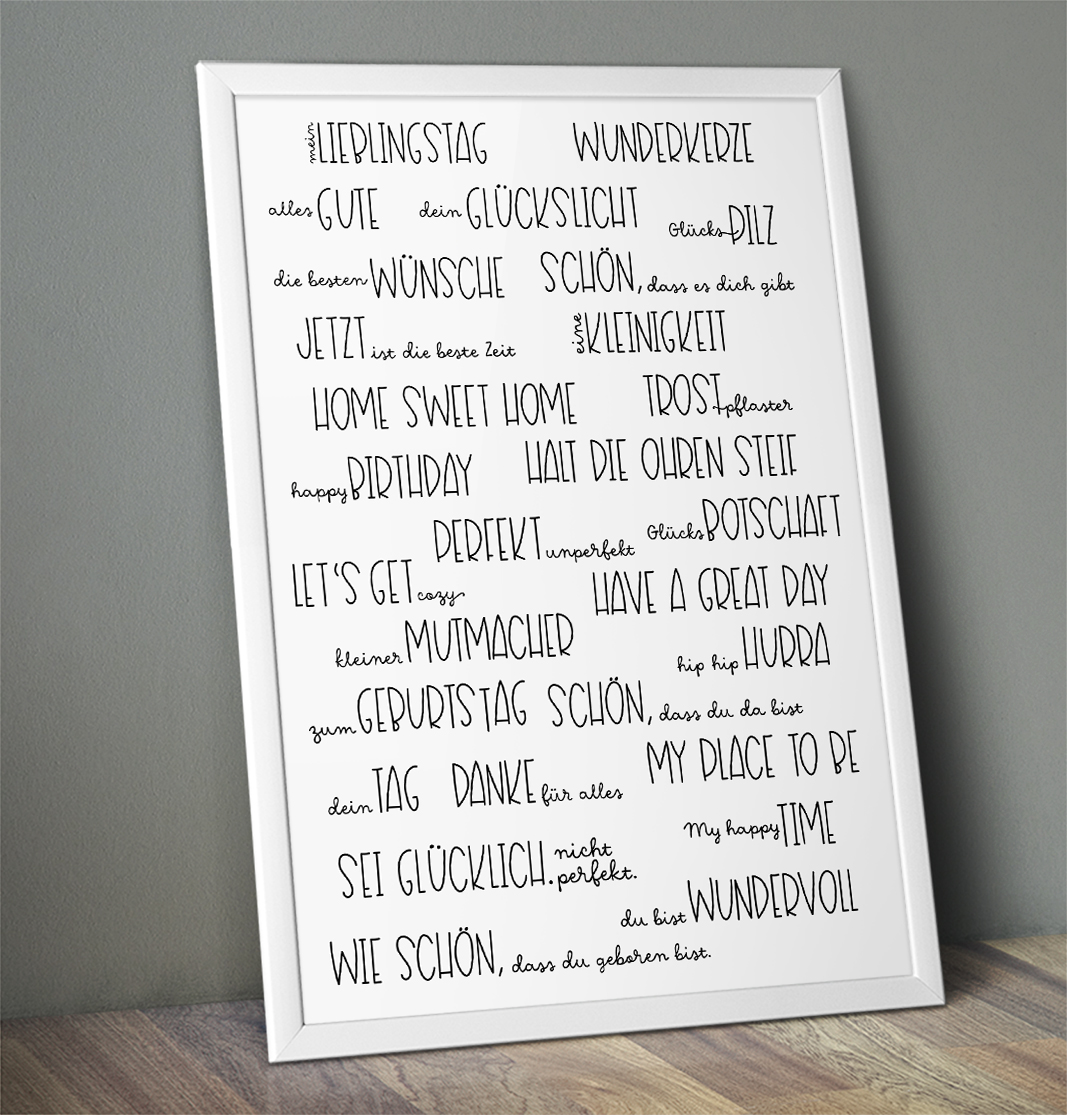 mein LIEBLINGSTAG WUNDERKERZE
alles GUTE dein GLÜCKSLICHT GlücksPILZ
die besten WÜNSCHE SCHÖN, dass es dich gibt
JETZT ist die beste Zeit eine KLEINIGKEIT
HOME SWEET HOME TROSTpflaster
happy BIRTHDAY HALT DIE OHREN STEIF
PERFEKT unperfekt GlücksBOTSCHAFT
LET'S GET cozy HAVE A GREAT DAY
kleiner MUTMACHER hip hip HURRA
zum GEBURTSTAG SCHÖN, dass du da bist
dein TAG DANKE für alles MY PLACE TO BE
My happy TIME
SEI GLÜCKLICH. nicht
perfekt.
du bist WUNDERVOLL
WIE SCHÖN, dass du geboren bist.